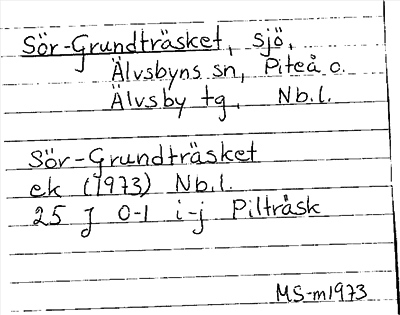 Sör-Grundträsket, sjö,
Älvsbyns sn, Piteå o.
Älvsby tg, Nb.l.
Sör-Grundträsket
ek (1973) Nb.l.
25 J 0-1 i-j Pilträsk
MS-m1973